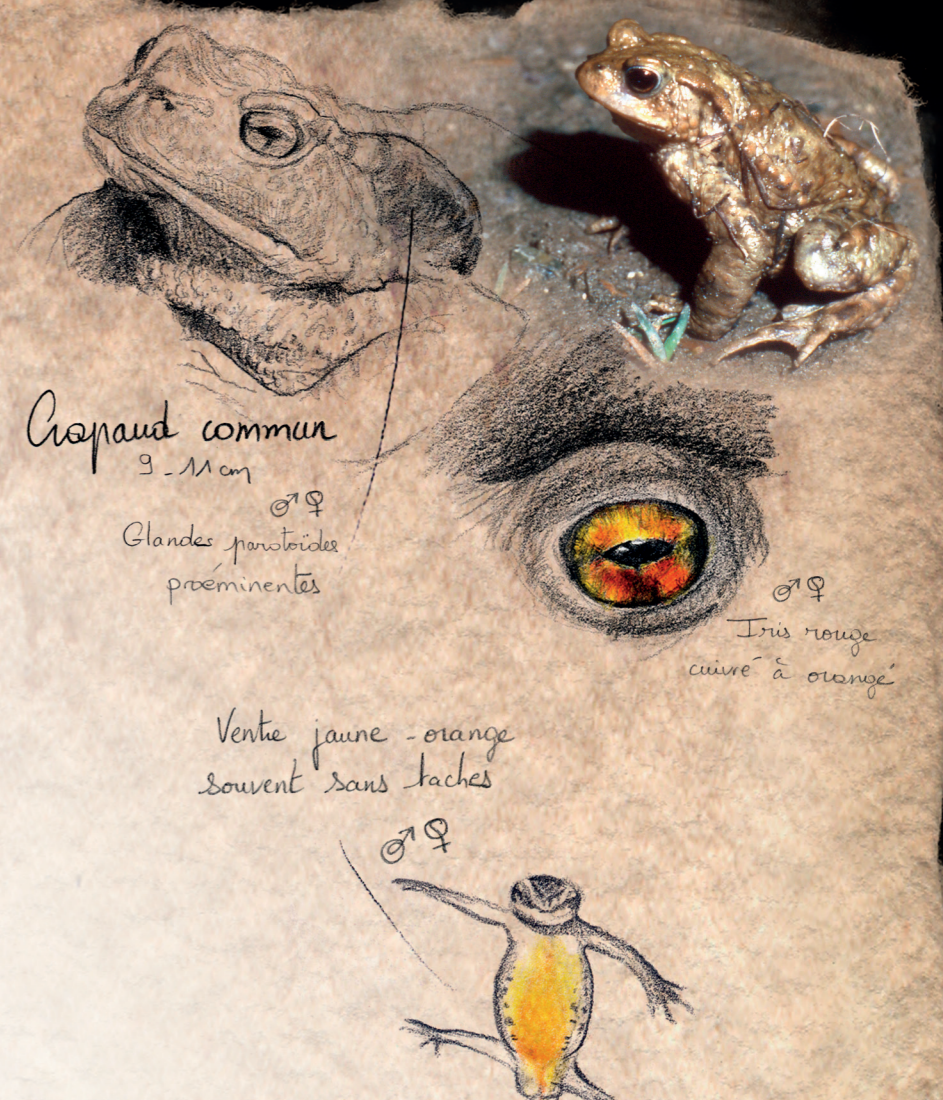 Crapaud commun
9-11 cm
♂♀
Glandes parotoïdes
proéminentes
♂♀
Iris rouge
cuivré à orangé
Ventre jaune-orange
souvent sans taches
♂♀